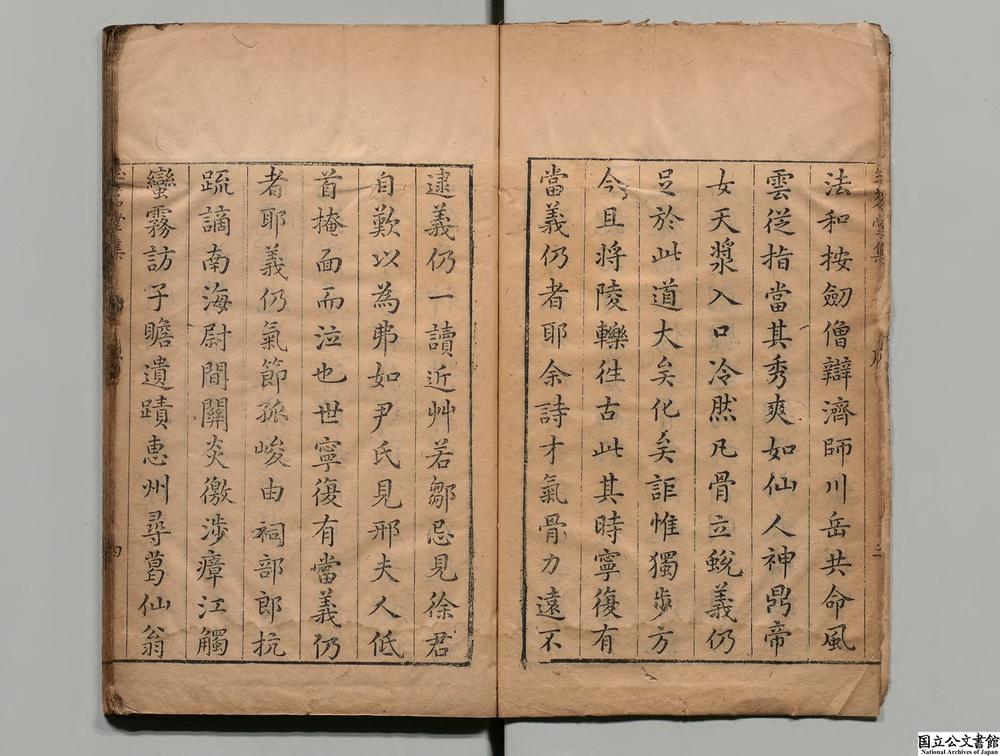 法和按劒僧辯濟師川岳共命風
雲從指當其秀爽如仙人神鼎帝
女天漿入口冷然凡骨立蛻義仍
足於此道大矣化矣詎惟獨步方
今且將陵轢徃古此其時寧復有
當義仍者耶余詩才氣骨力遠不
逮義仍一讀近艸若鄒忌見徐君
自歎以為弗如尹氏見邢夫人低
首掩面而泣也世寧復有當義仍
者耶義仍氣節孤峻由祠部郎抗
疏謫南海尉間關炎徼涉瘴江觸
蠻霧訪子瞻遺蹟惠州尋葛仙翁
三
四
国立公文書館
National Archives of Japan